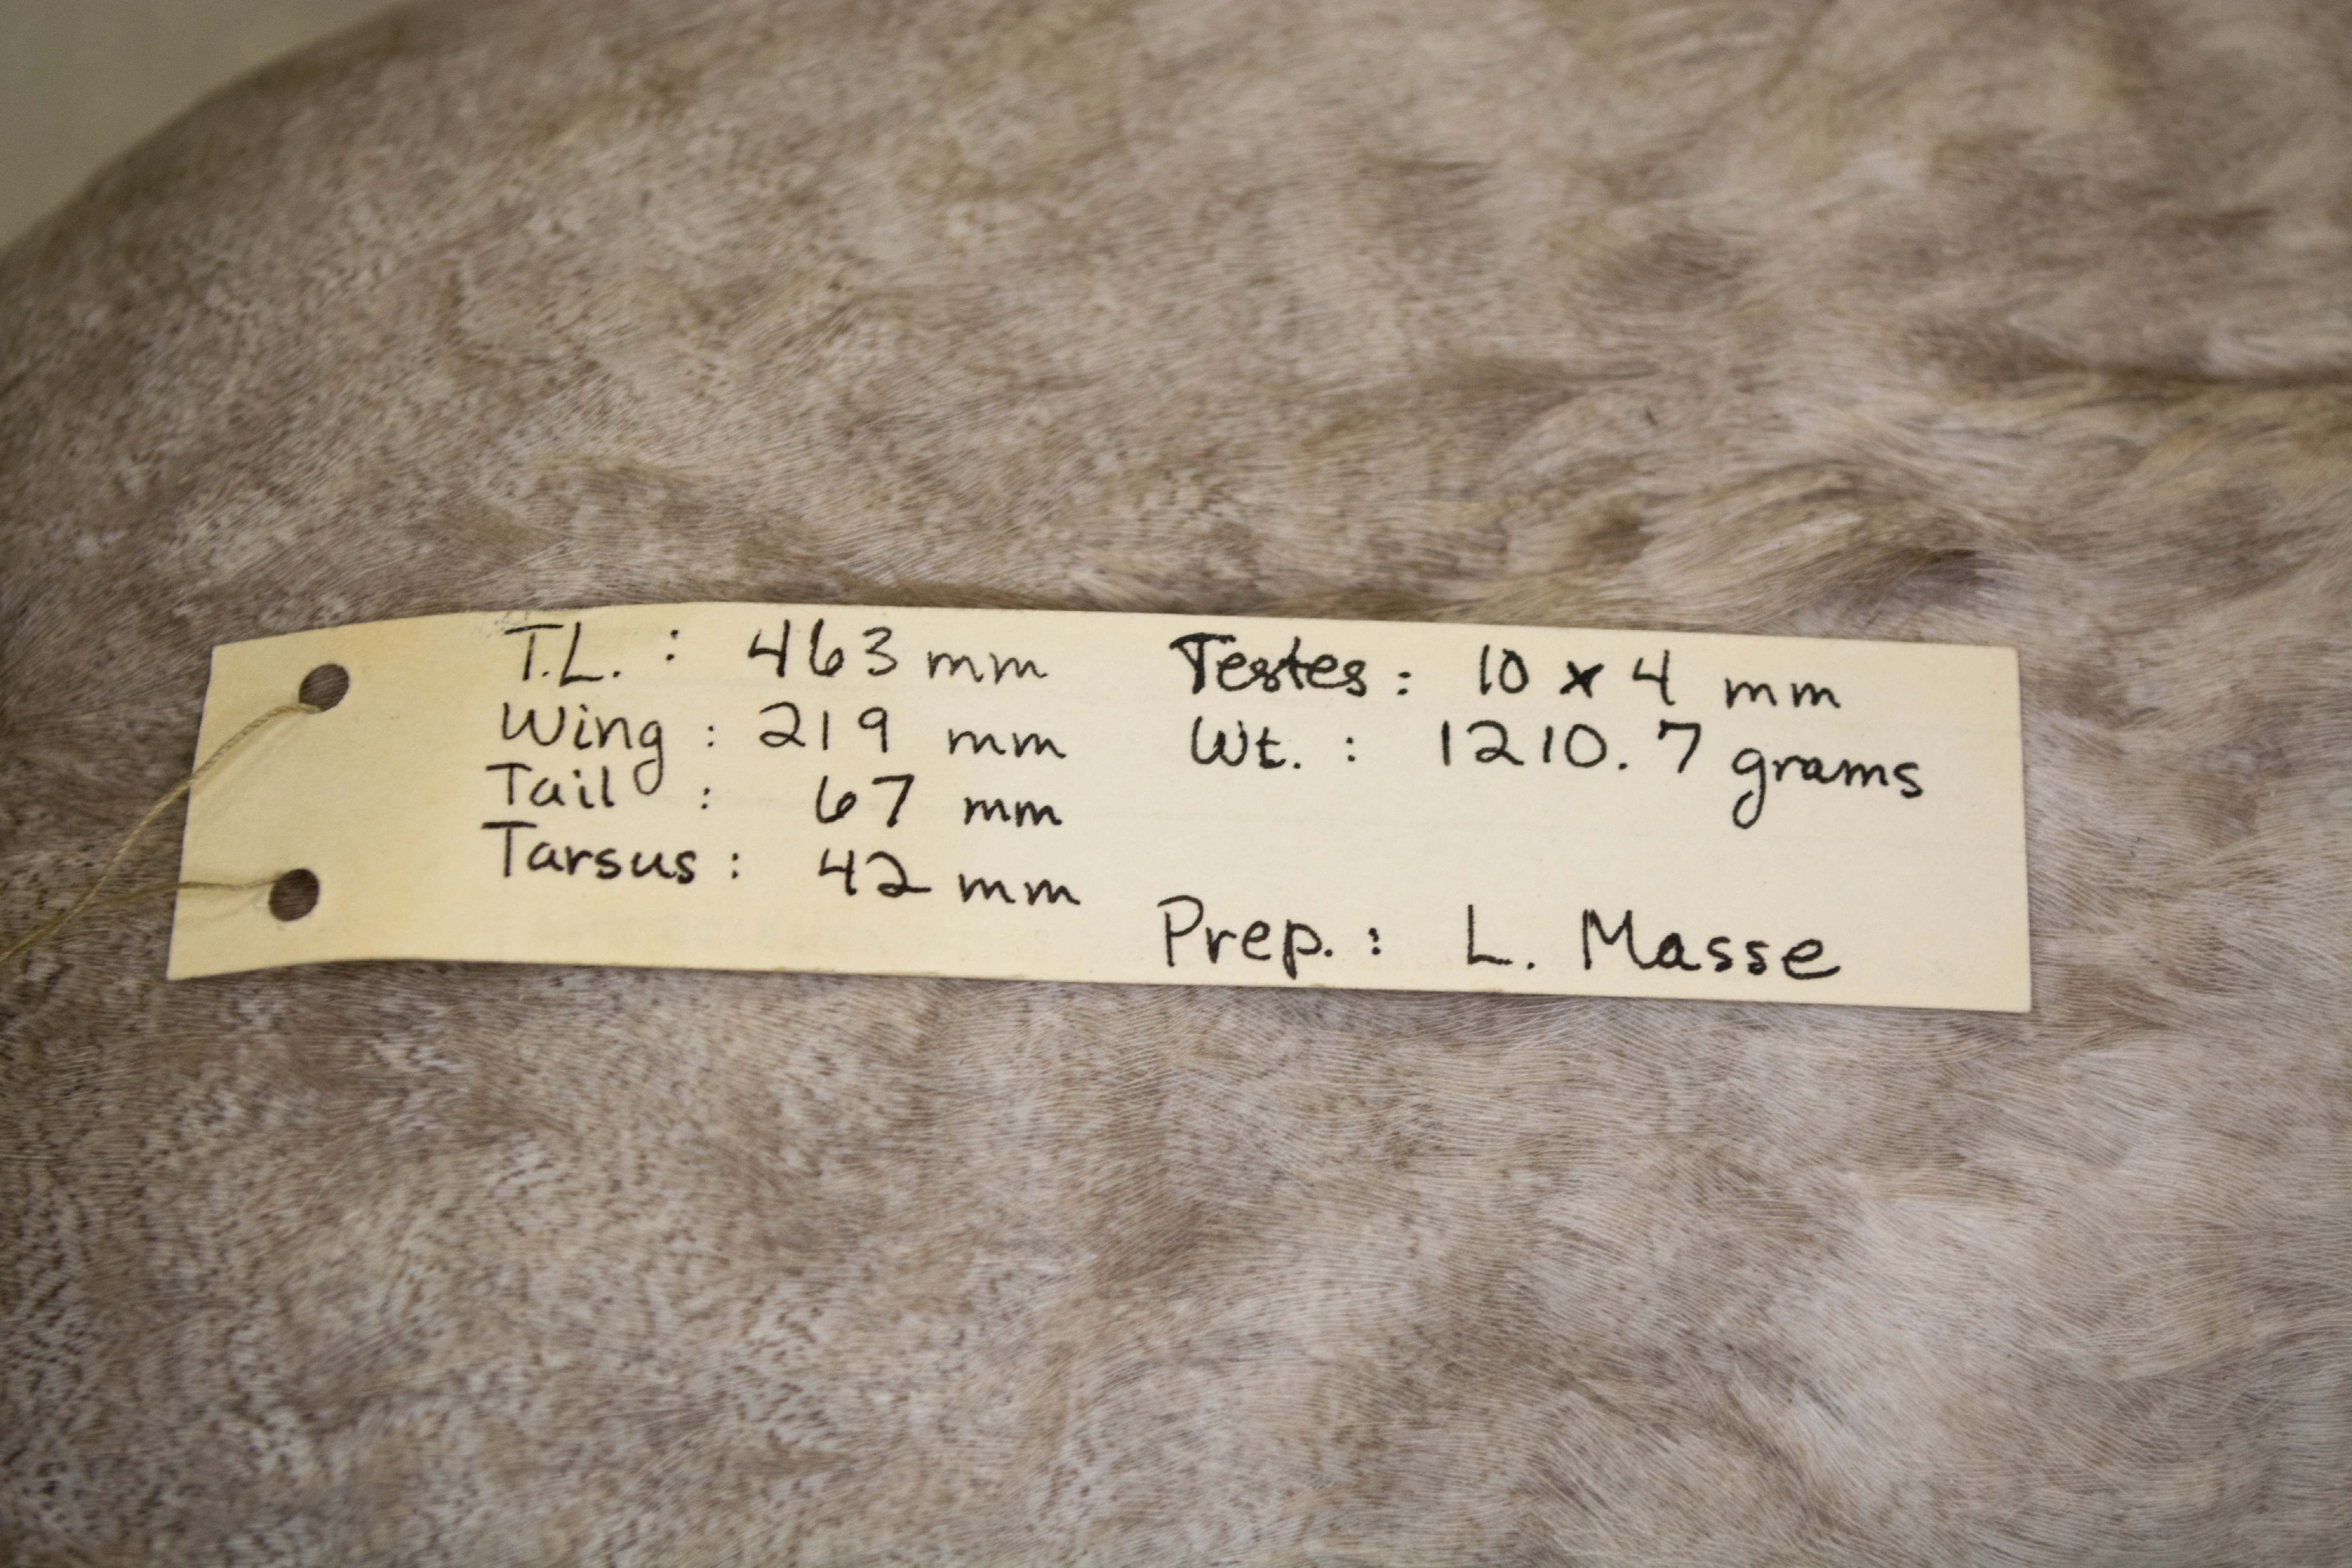 T.L. : 463 mm
Wing : 219 mm
Tail : 67 mm
Tarsus : 42 mm
Testes : 10 x 4 mm
Wt. : 1210.7 grams
Prep. : L. Masse